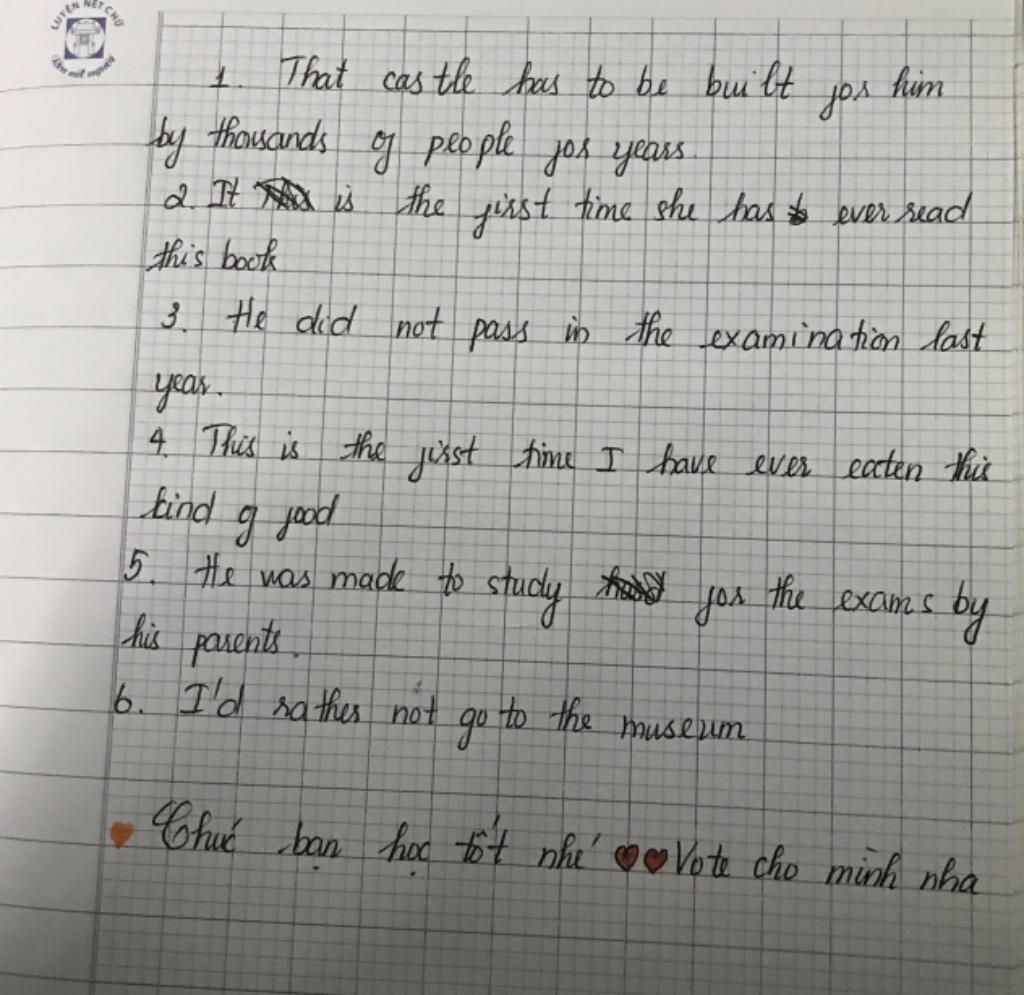 LUYỆN NÉT CHỮ
1. That castle has to be built for him
by thousands of people for years.
2. It is the first time she has ever read
this book
3. He did not pass in the examination last
year.
4. This is the first time I have ever eaten this
kind of food
5. He was made to study for the exams by
his parents.
6. I'd rather not go to the museum
Chúc bạn học tốt nhé Vote cho mình nha